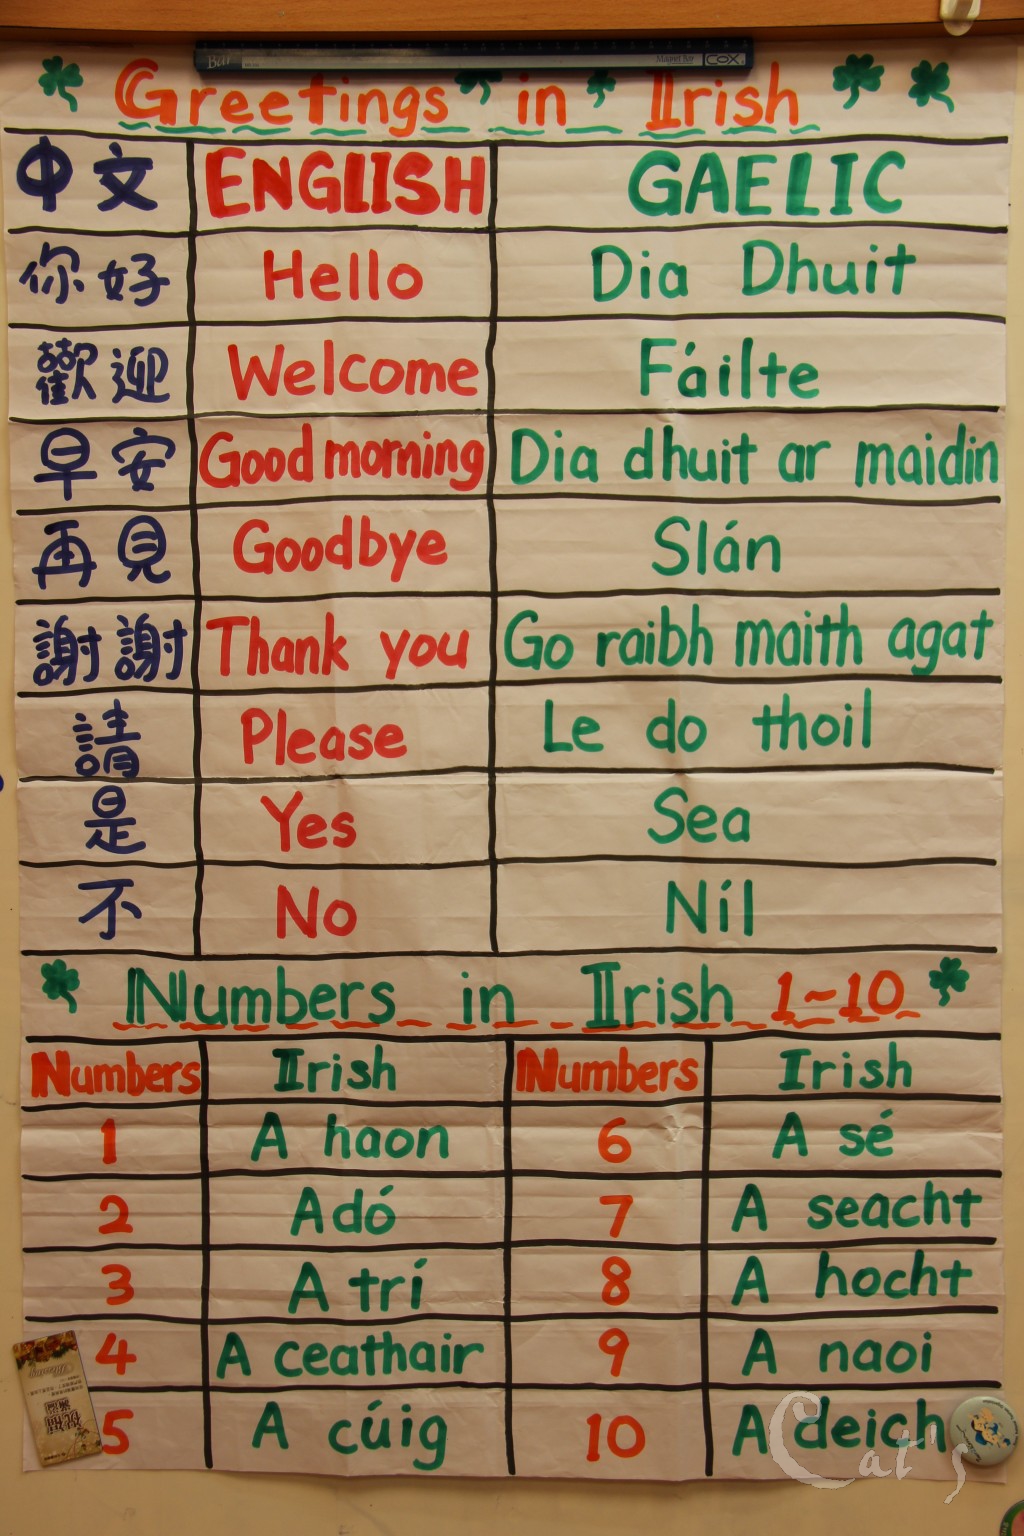 Greetings in Irish
中文 ENGLISH GAELIC
你好 Hello Dia Dhuit
歡迎 Welcome Fáilte
早安 Good morning Dia dhuit ar maidin
再見 Goodbye Slán
謝謝 Thank you Go raibh maith agat
請 Please Le do thoil
是 Yes Sea
不 No Níl
Numbers in Irish 1~10
Numbers Irish Numbers Irish
1 A haon 6 A sé
2 A dó 7 A seacht
3 A trí 8 A hocht
4 A ceathair 9 A naoi
5 A cúig 10 A deich
Cat's
COX